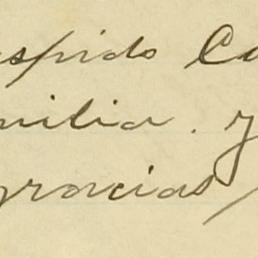 espido Ca
milia. y
gracias